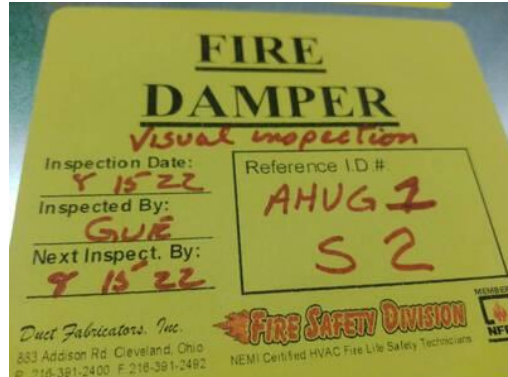 FIRE
DAMPER
Visual inspection
Inspection Date:
8 15 22
Inspected By:
GUIE
Next Inspect. By:
8 15 22
Reference I.D.#:
AHUG 1
S 2
Duct Fabricators, Inc.
883 Addison Rd. Cleveland, Ohio
P. 216-391-2400 F. 216-391-2492
FIRE SAFETY DIVISION
NEMI Certified HVAC Fire Life Safety Technicians
MEMBER